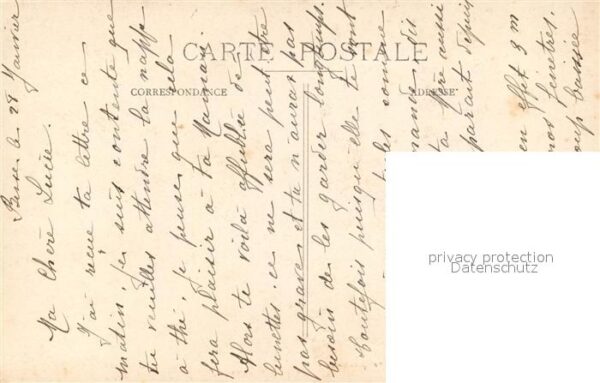 CARTE POSTALE
CORRESPONDANCE
ADRESSE
le 28 Janvier
Ma Chère Lucie.
J'ai reçue ta lettre ce
matin. j'ai suis contente que
tu veuilles attendre ta nappe
à thé. je pense que cela
fera plaisir à ta Maman.
Alors te voilà affublée de
lunettes. ce ne sera peut être
pas grave et tu n'auras pas
besoin de les garder longtemps.
toutefois puisqu'elle te sont
les
ta Mère aussi
parait depuis
en effet 3 m
nos fenêtres.
baissée
privacy protection
Datenschutz